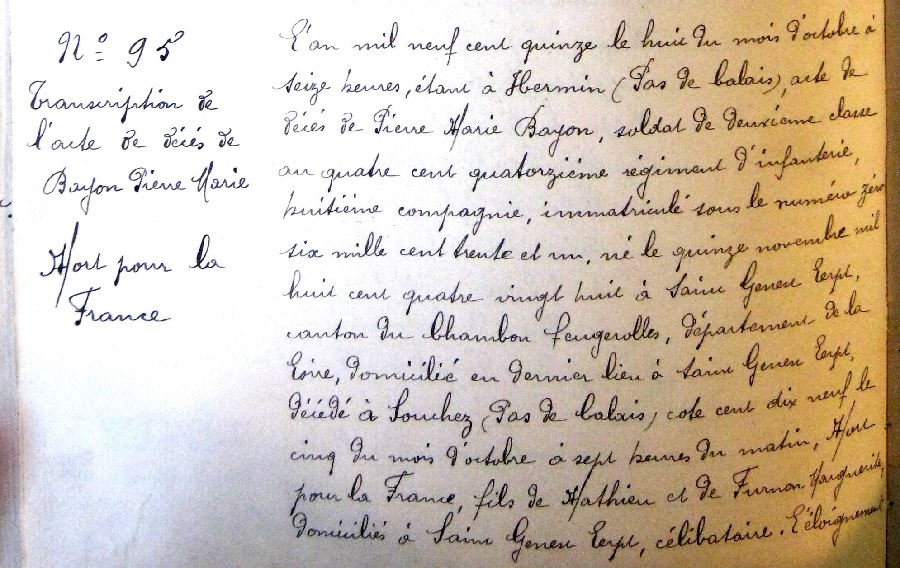 N° 95
Transcription de
l'acte de décés de
Bayon Pierre Marie
Mort pour la
France
L'an mil neuf cent quinze le huit du mois d'octobre à
seize heures, étant à Hermin (Pas de Calais), acte de
décés de Pierre Marie Bayon, soldat de deuxième classe
au quatre cent quatorzième régiment d'infanterie,
huitième compagnie, immatriculé sous le numéro zéro
six mille cent trente et un, né le quinze novembre mil
huit cent quatre vingt huit à Saint Genest Lerpt,
canton du Chambon Feugerolles, département de la
Loire, domicilié en dernier lieu à Saint Genest Lerpt,
décédé à Souchez (Pas de Calais) cote cent dix neuf le
cinq du mois d'octobre à sept heures du matin, Mort
pour la France, fils de Mathieu et de Furnon Marguerite,
domiciliés à Saint Genest Lerpt, célibataire. L'éloignement